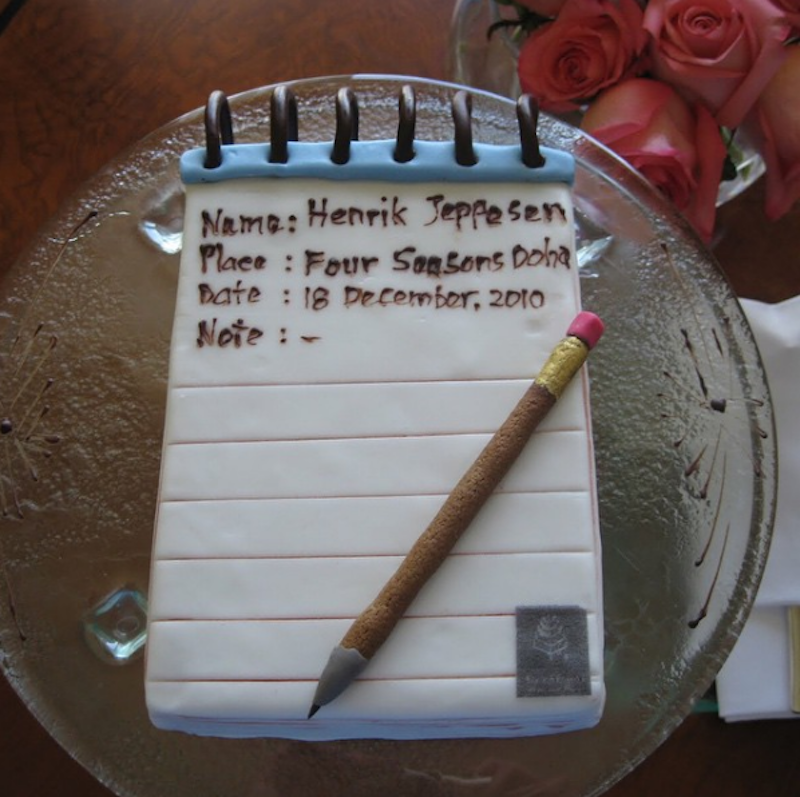 Name: Henrik Jeppesen
Place : Four Seasons Doha
Date : 18 December. 2010
Note : -